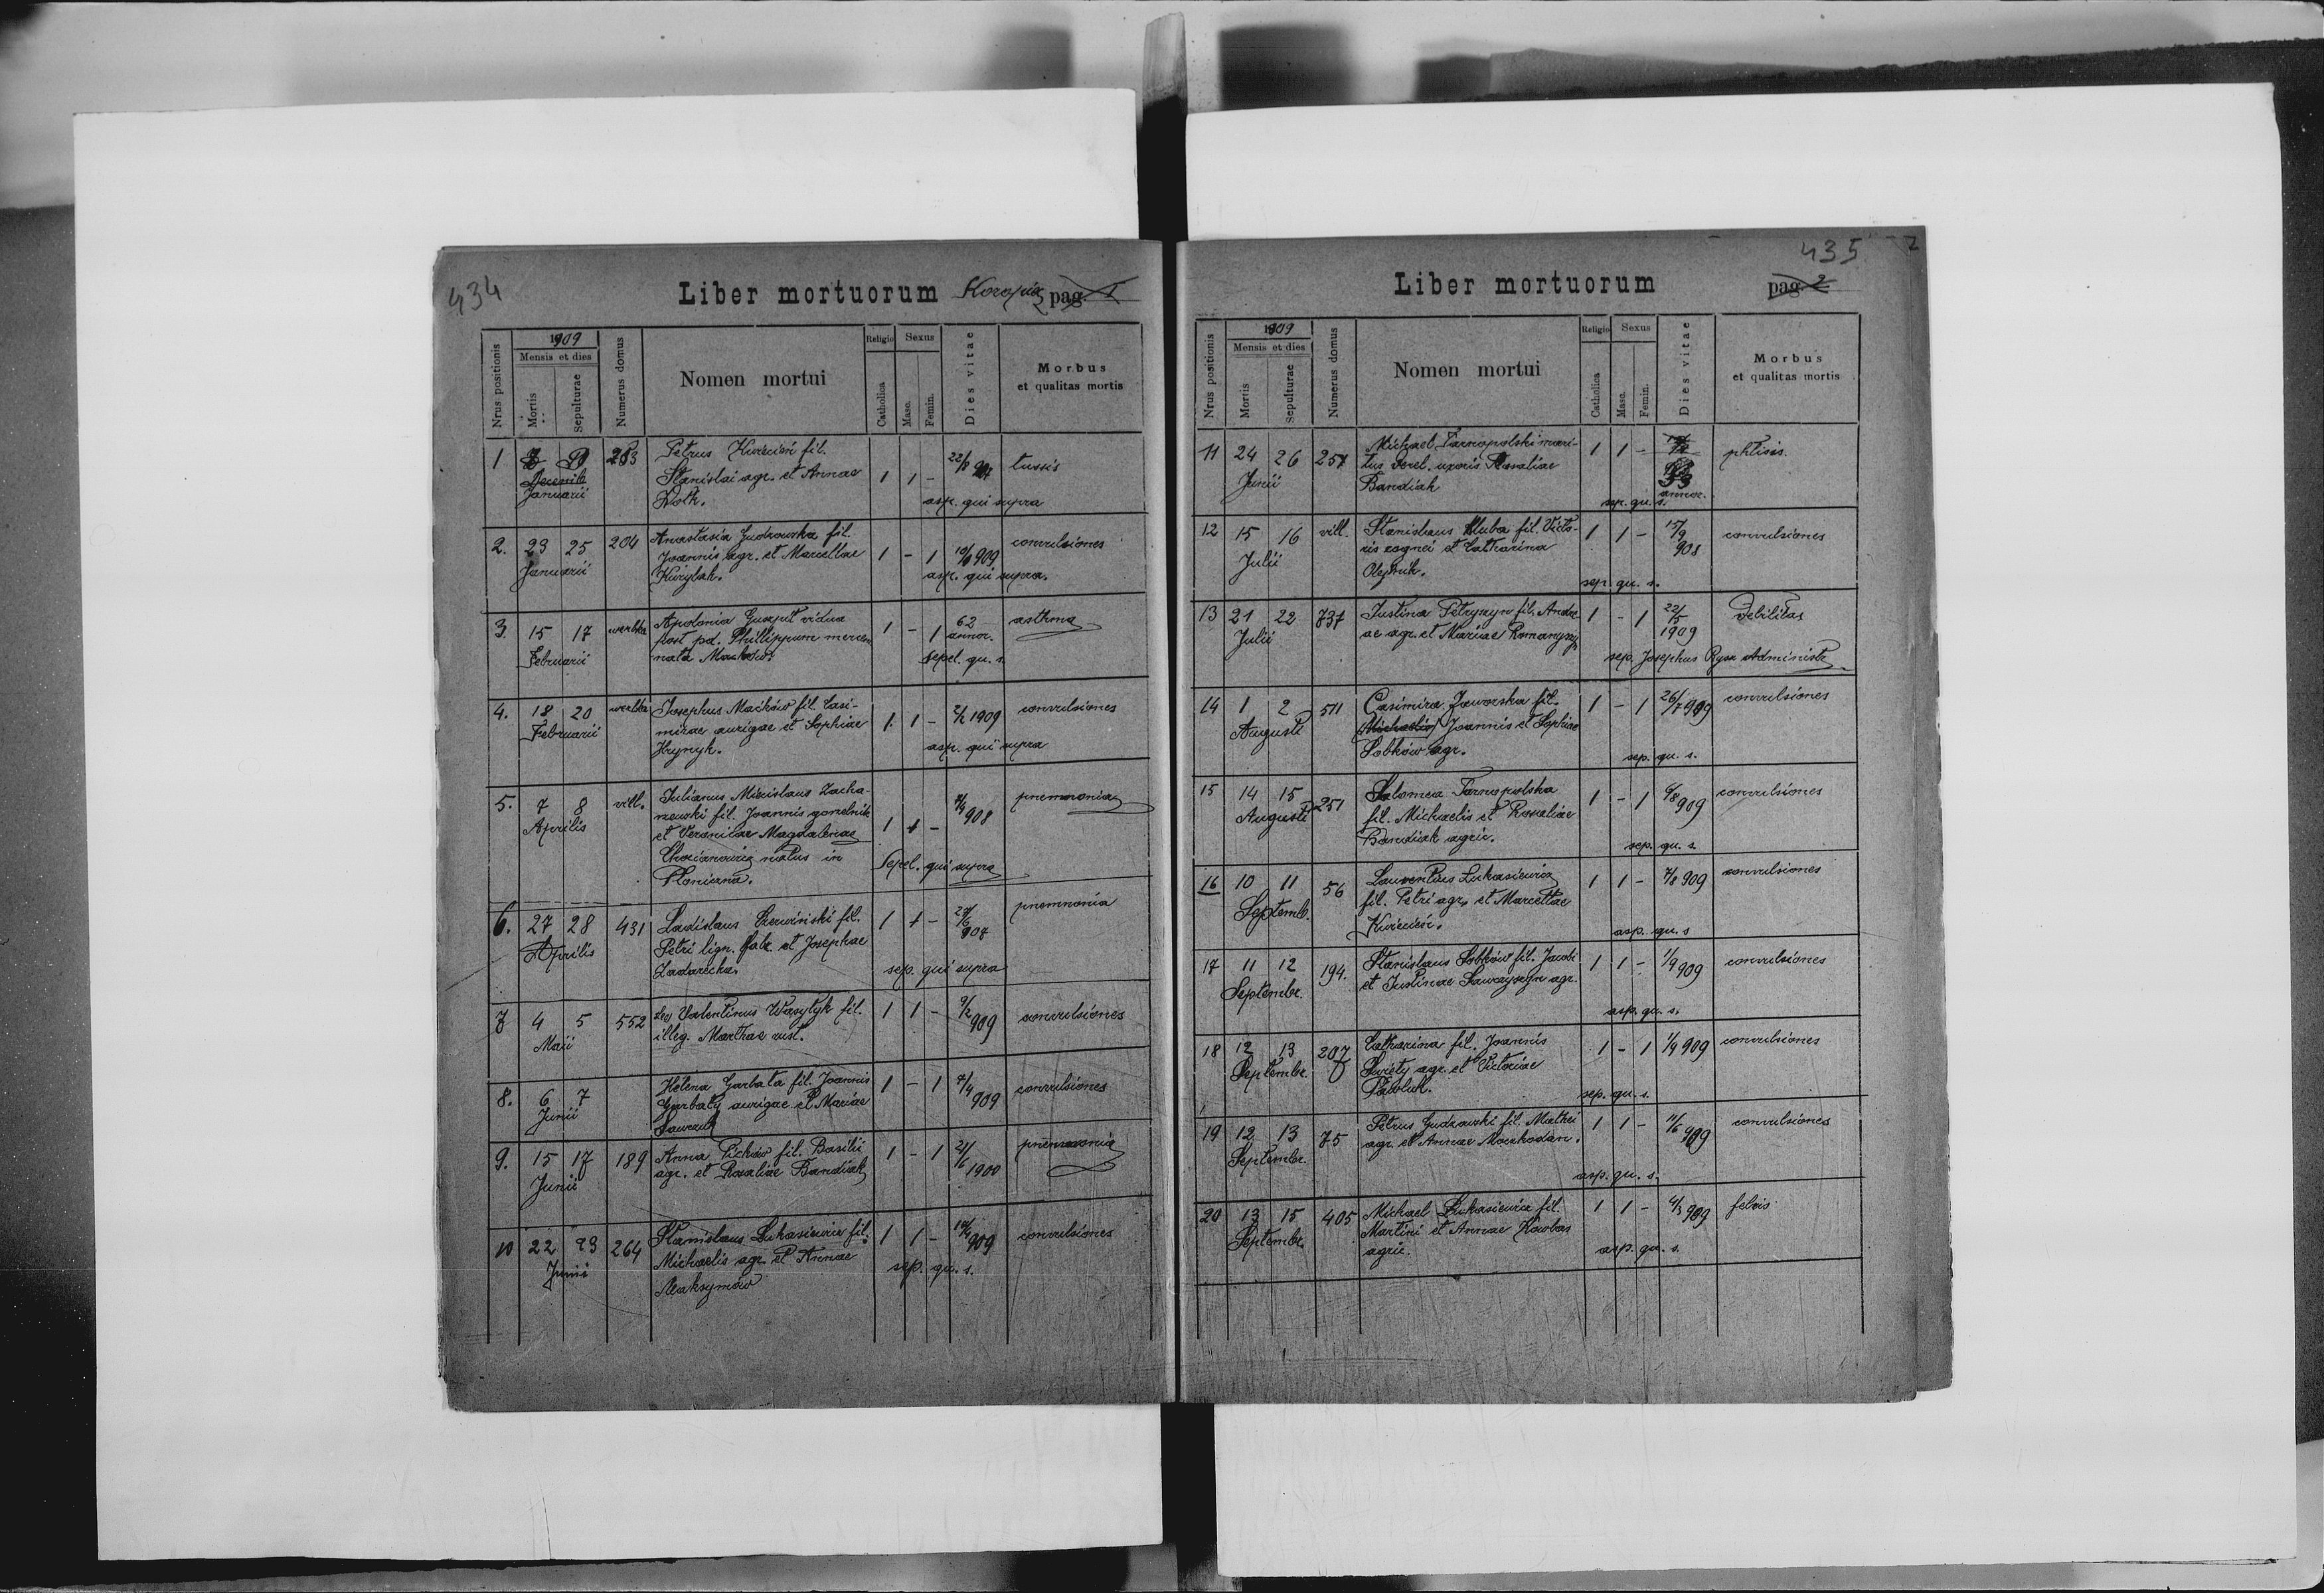 434
Liber mortuorum
pag. 1
Nrus positionis
1909
Mensis et dies
Mortis
Sepulturae
Numerus domus
Nomen mortui
Religio
Catholica
Sexus
Masc.
Femin.
Dies vitae
Morbus
et qualitas mortis
1 Januarii 283 Petrus fil.
Stanislai agr. et Annae
1 1 -
tussis
asp. qui supra
2. 23 25 Januarii 204 Anastasia Gudzowska fil.
Joannis agr. et Marcellae
Kurylak.
1 - 1 909
convulsiones
asp. qui supra.
3. 15 17 Februarii werbka Apolonia vidua
post pd. Phillippum mercen.
nata Maćków.
1 - 1 62 annor.
asthma
sepel. qu. s.
4. 18 20 Februarii werbka Josephus Maćków fil. Casi-
mirae aurigae et Sophiae
Hrynyk.
1 1 - 2/2 1909
convulsiones
asp. qui supra
5. 7 8 Aprilis vill. Julianus
fil. Joannis
et Veronicae Magdalenae
natus in
1 1 - 908
pnemnonia
Sepel. qui supra
6. 27 28 Aprilis 431 Ladislaus fil.
Petri lign. fabr. et Josephae
Zadarecka.
1 1 -
pnemnonia
sep. qui supra
7 4 5 Maii 552 Leo Valentinus Wasylyk fil.
illeg. Marthae rust.
1 1 - 9/2 909
convulsiones
8. 6 7 Junii Helena Garbata fil. Joannis
Garbaty aurigae et Mariae
1 - 1 7/4 909
convulsiones
9. 15 17 Junii 189 Anna Pichów fil. Basilii
agr. et Rosaliae Bandiak
1 - 1 21/6 1900
pnemnonia
10 22 23 Junii 264 Stanislaus Lukasiewicz fil.
Michaelis agr. et Annae
Maksymów
1 1 - 909
convulsiones
sep. qu. s.
435
2
Liber mortuorum
pag. 2
Nrus positionis
1909
Mensis et dies
Mortis
Sepulturae
Numerus domus
Nomen mortui
Religio
Catholica
Sexus
Masc.
Femin.
Dies vitae
Morbus
et qualitas mortis
11 24 26 Junii 251 Michael Tarnopolski mari-
tus derel. uxoris Rosaliae
Bandiak
1 1 - 33 annor.
phtisis.
sep. qu. s.
12 15 16 Julii vill. Stanislaus Kluba fil. Victo-
ris et Catharina
Olejnik.
1 1 - 15/9 908
convulsiones
sep. qu. s.
13 21 22 Julii 737 Justina Petryszyn fil. Andre
ae agr. et Mariae
1 - 1 22/5 1909
debilitas
sep. Josephus Administr.
14 1 2 Augusti 511 Casimira Jaworska fil.
Michaelis Joannis et Sophiae
Sobków agr.
1 - 1 909
convulsiones
sep. qu. s.
15 14 15 Augusti 251 Salomea Tarnopolska
fil. Michaelis et Rosaliae
Bandiak agric.
1 - 1 6/8 909
convulsiones
sep. qu. s.
16 10 11 Septemb. 56 Laurentius Lukasiewicz
fil. Petri agr. et Marcellae
1 1 - 7/8 909
convulsiones
asp. qu. s
17 11 12 Septembr. 194. Stanislaus Sobków fil. Jacobi
et Justinae agr.
1 1 - 1/9 909
convulsiones
asp. qu. s.
18 12 13 Septembr. 207 Catharina fil. Joannis
Swiety agr. et Victoriae
1 - 1 1/9 909
convulsiones
sep. qu. s.
19 12 13 Septembr. 75 Petrus Gudzowski fil. Mathei
agr. et Annae
1 1 - 909
convulsiones
asp. qu. s.
20 13 15 Septembr. 405 Michael Lukasiewicz fil.
Martini et Annae
agric.
1 1 - 4/3 909
febris
asp. qu. s.